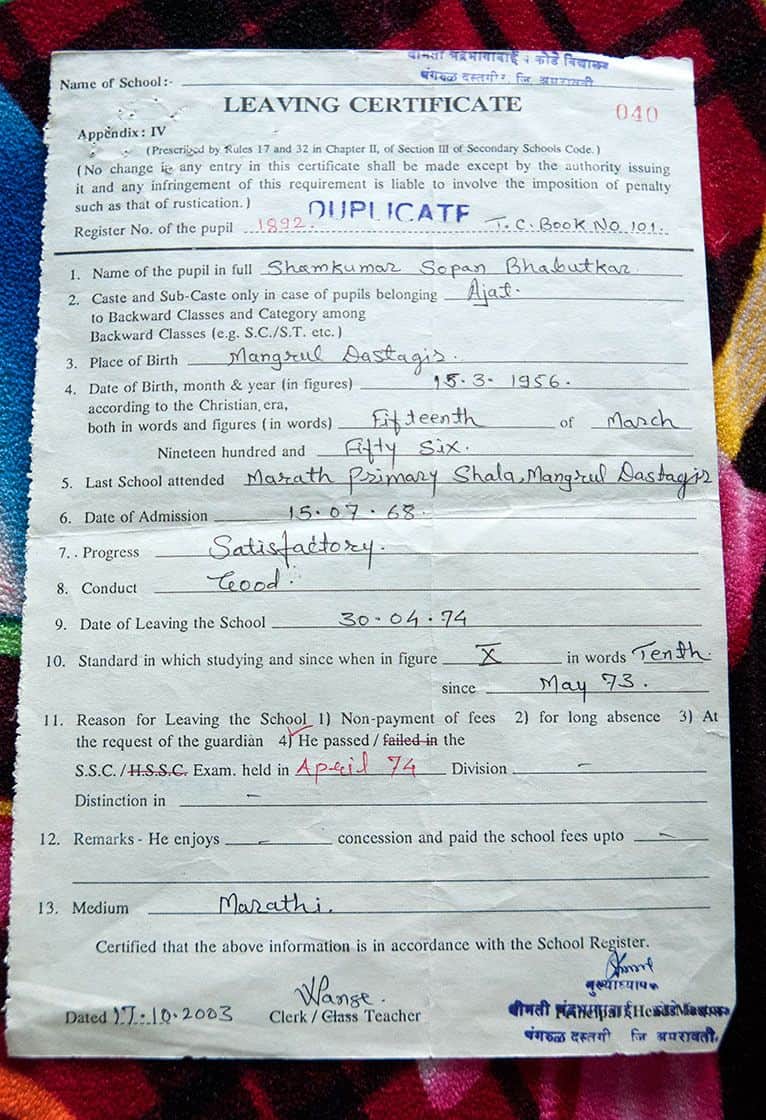 Name of School :-
कोर्डे विद्यालय
दस्तगीर, जि अमरावती
LEAVING CERTIFICATE
040
Appendix : IV
(Prescribed by Rules 17 and 32 in Chapter II, of Section III of Secondary Schools Code.)
(No change in any entry in this certificate shall be made except by the authority issuing
it and any infringement of this requirement is liable to involve the imposition of penalty
such as that of rustication.)
DUPLICATE
Register No. of the pupil 1892. T.C. Book No 101.
1. Name of the pupil in full Shamkumar Sopan Bhabutkar.
2. Caste and Sub-Caste only in case of pupils belonging Ajat.
to Backward Classes and Category among
Backward Classes (e.g. S.C./S.T. etc.)
3. Place of Birth Mangrul Dastagir.
4. Date of Birth, month & year (in figures) 15.3.1956.
according to the Christian era,
both in words and figures (in words) Fifteenth of March
Nineteen hundred and Fifty Six.
5. Last School attended Marath Primary Shala, Mangrul Dastagir
6. Date of Admission 15.07.68.
7. . Progress Satisfactory.
8. Conduct Good.
9. Date of Leaving the School 30-04-74
10. Standard in which studying and since when in figure X in words Tenth.
since May 73.
11. Reason for Leaving the School 1) Non-payment of fees 2) for long absence 3) At
the request of the guardian 4) He passed / failed in the
S.S.C. / H.S.S.C. Exam. held in April 74 Division -
Distinction in -
12. Remarks - He enjoys - concession and paid the school fees upto -
13. Medium Marathi.
Certified that the above information is in accordance with the School Register.
मुख्याध्यापक
Dated 17.10.2003 Clerk / Class Teacher Principal / Head Master
दस्तगी जि अमरावती.